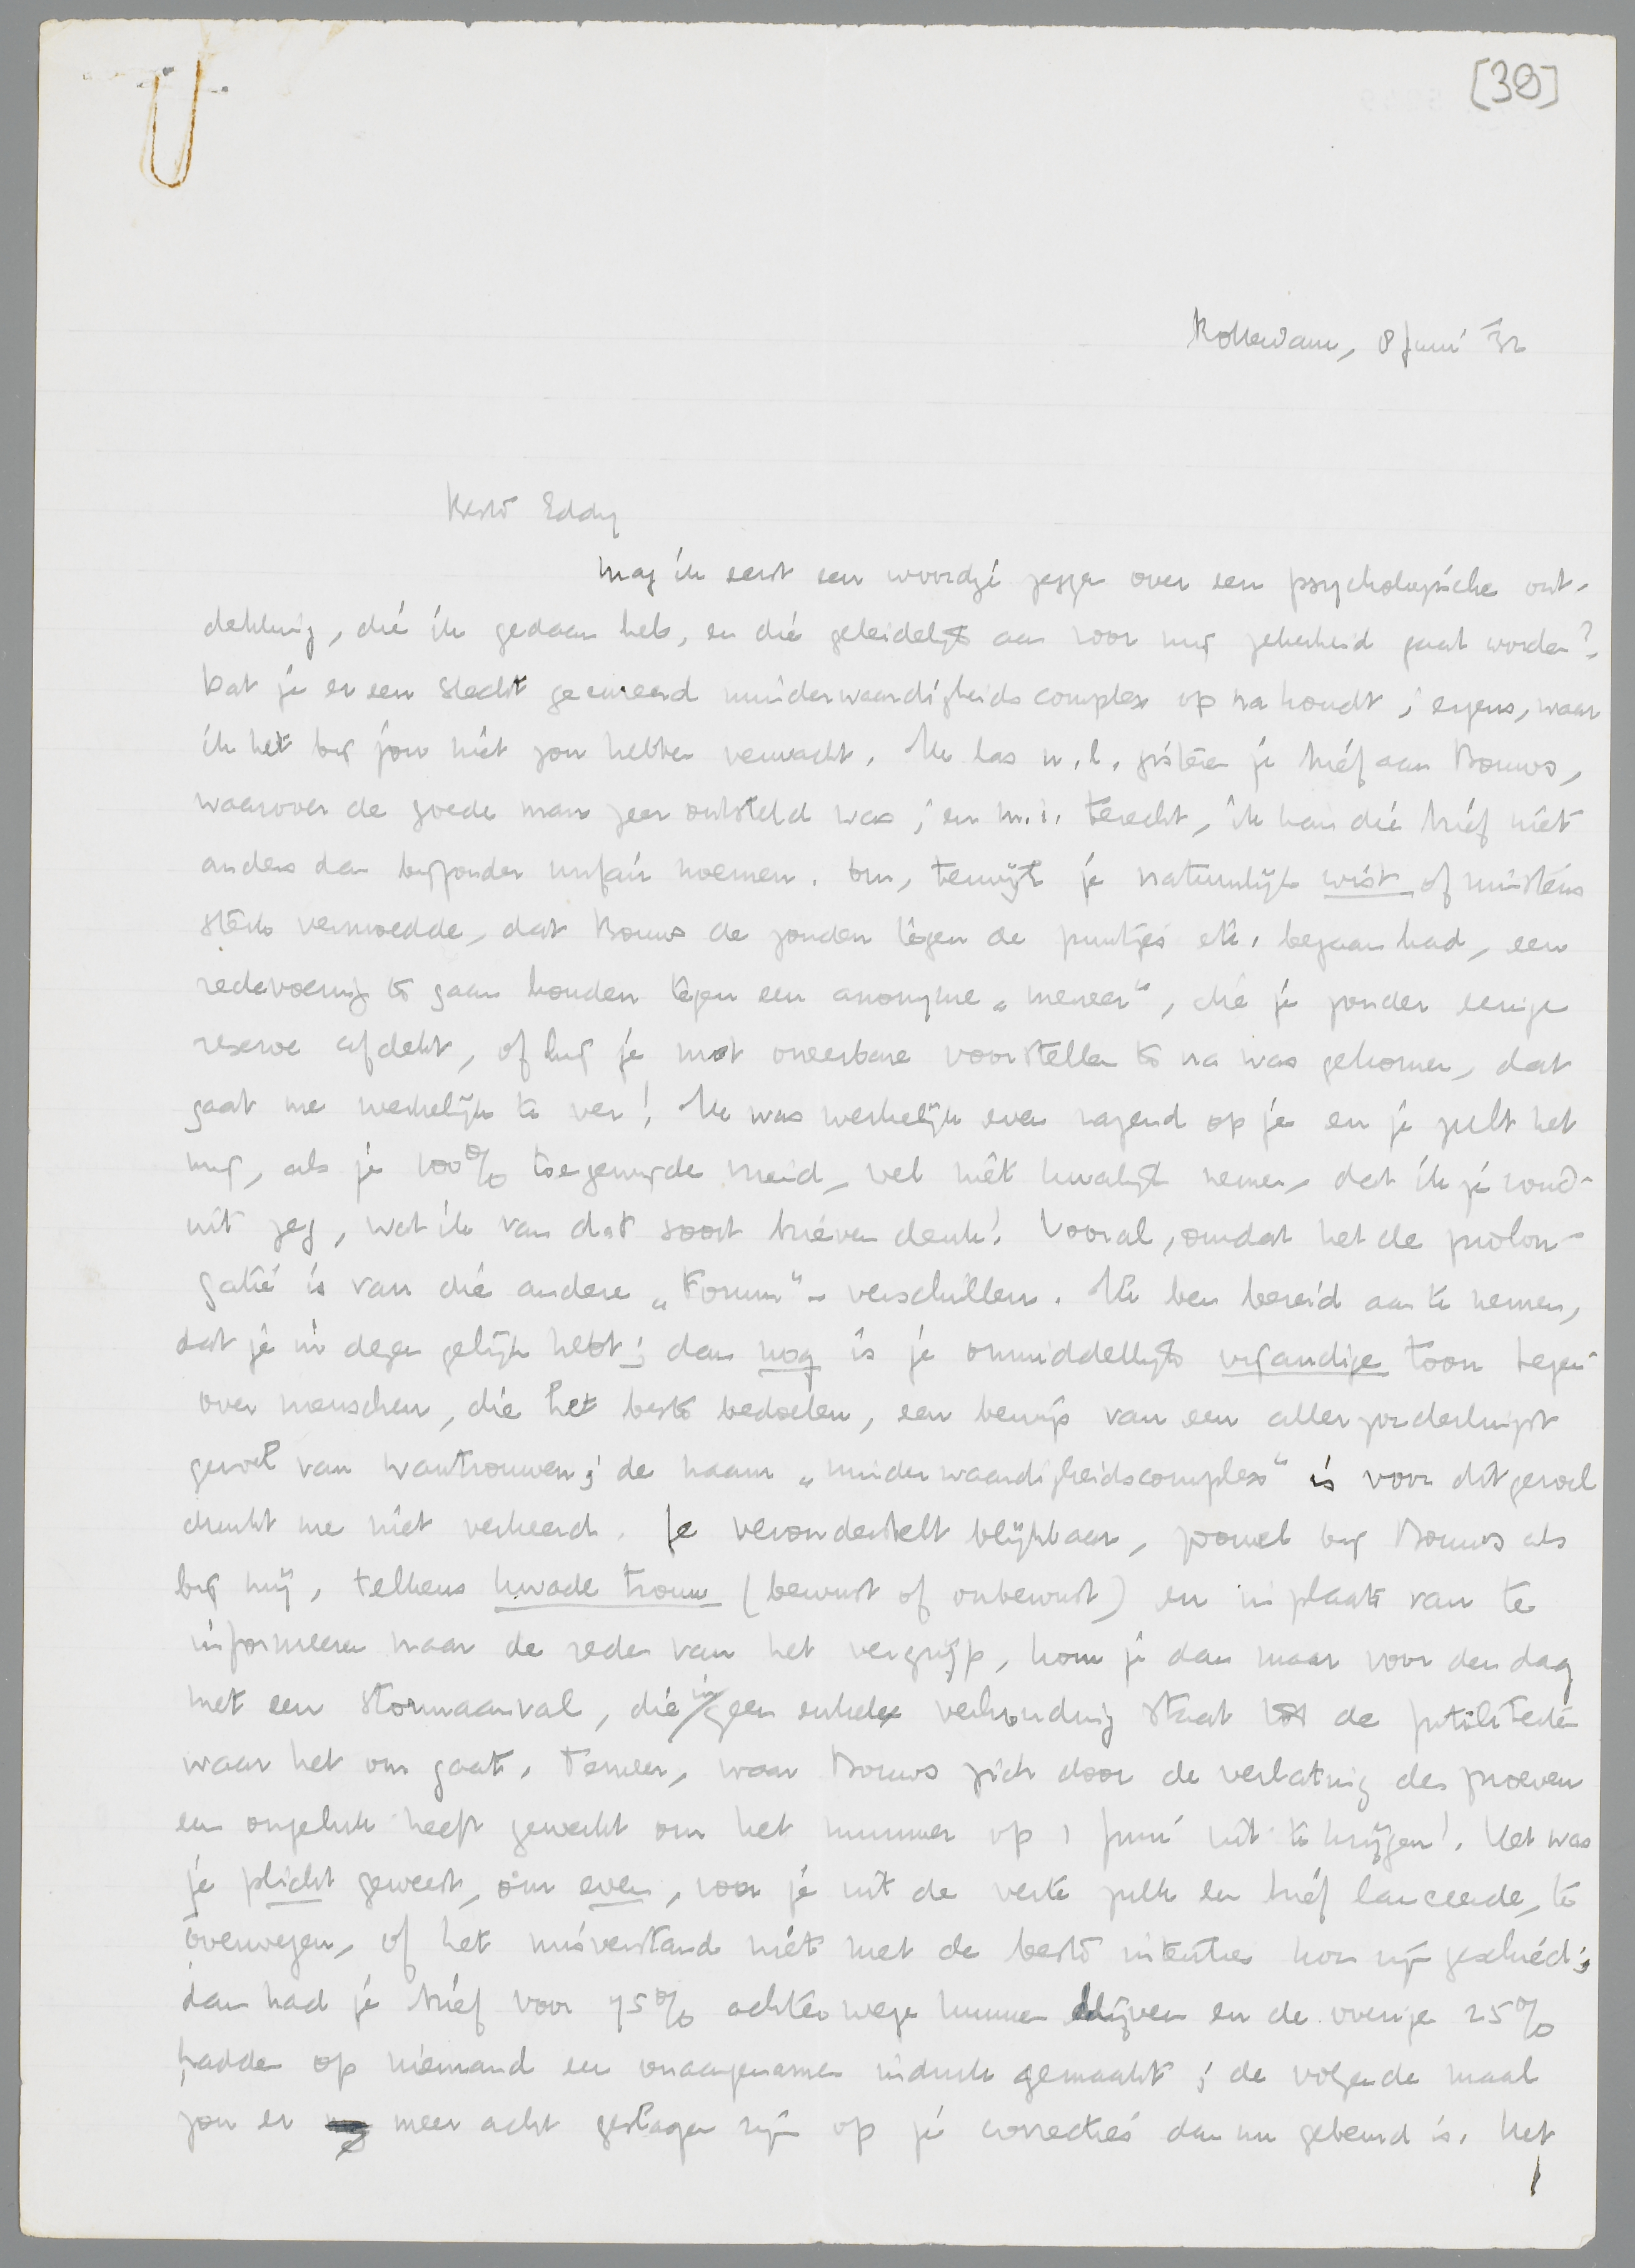 [38]
Rotterdam, 8 Juni '32
Beste Eddy
Mag ik eerst een woordje zeggen over een psychologische ont-
dekking, die ik gedaan heb, en die geleidelijk aan voor mij zekerheid gaat worden?
Dat je er een slecht gecureerd minderwaardigheidscomplex op na houdt; ergens, waar
ik het bij jou niet zou hebben verwacht. Ik las n.l. gisteren je brief aan Bouws,
waarover de goede man zeer ontsteld was; en m.i. terecht, ik kan die brief niet
anders dan bijzonder unfair noemen. Om, terwijl je natuurlijk wist of minstens
sterk vermoedde, dat Bouws de zonden tegen de puntjes etc. begaan had, een
redevoering te gaan houden tegen een anonyme „meneer", die je zonder eenige
reserve afdekt, of hij je met oneerbare voorstellen te na was gekomen, dat
gaat me werkelijk te ver! Ik was werkelijk even razend op je en je zult het
mij, als je 100% toegewijde vriend, wel niet kwalijk nemen, dat ik je rond-
uit zeg, wat ik van dat soort brieven denk! Vooral, omdat het de prolon-
gatie is van die andere „Forum"-verschillen. Ik ben bereid aan te nemen,
dat je in dezen gelijk hebt; dan nog is je onmiddellijk vijandige toon tegen-
over menschen, die het beste bedoelen, een bewijs van een allerzonderlingst
gevoel van wantrouwen; de naam „minderwaardigheidscomplex" is voor dit gevoel
dunkt me niet verkeerd. Je veronderstelt blijkbaar, zoowel bij Bouws als
bij mij, telkens kwade trouw (bewust of onbewust) en in plaats van te
informeeren naar de reden van het vergrijp, kom je dan maar voor den dag
met een stormaanval, die in geen enkele verhouding staat tot de futiliteiten
waar het om gaat. Temeer, waar Bouws zich door de verlating der proeven
een ongeluk heeft gewerkt om het nummer op 1 Juni uit te krijgen! Het was
je plicht geweest, om even, voor je uit de verte zulk een brief lanceerde, te
overwegen, of het misverstand niet met de beste intenties kon zijn geschied;
dan had je brief voor 75% achterwege kunnen blijven en de overige 25%
hadden op niemand een onaangenamen indruk gemaakt; de volgende maal
zou er meer acht geslagen zijn op je correcties dan nu gebeurd is. Het